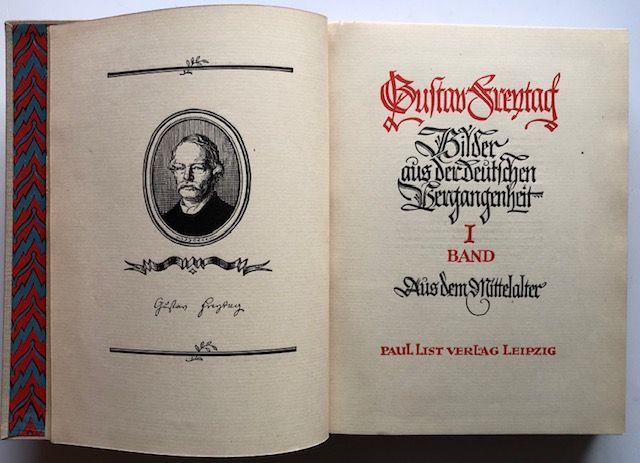 Gustav Freytag
Gustav Freytag
Bilder
aus der deutschen
Vergangenheit
I
BAND
Aus dem Mittelalter
PAUL LIST VERLAG LEIPZIG